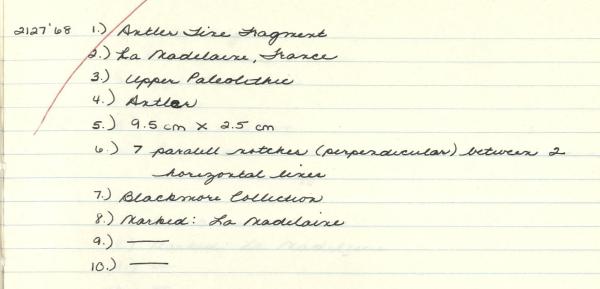 2127'68 1.) Antler Tine Fragment
2.) La Madelaine, France
3.) Upper Paleolithic
4.) Antler
5.) 9.5 cm x 2.5 cm
6.) 7 paralell notches (perpendicular) between 2
horizontal lines
7.) Blackmore Collection
8.) Marked: La Madelaine
9.) —
10.) —